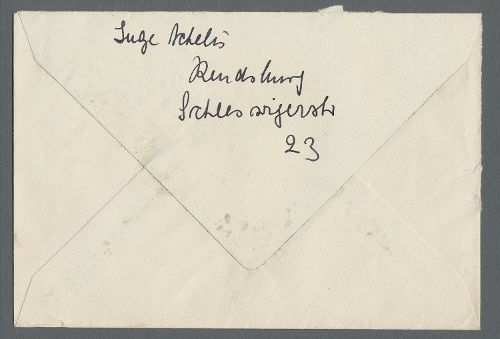 Inge Achelis
Rendsburg
Schleswigerstr
23